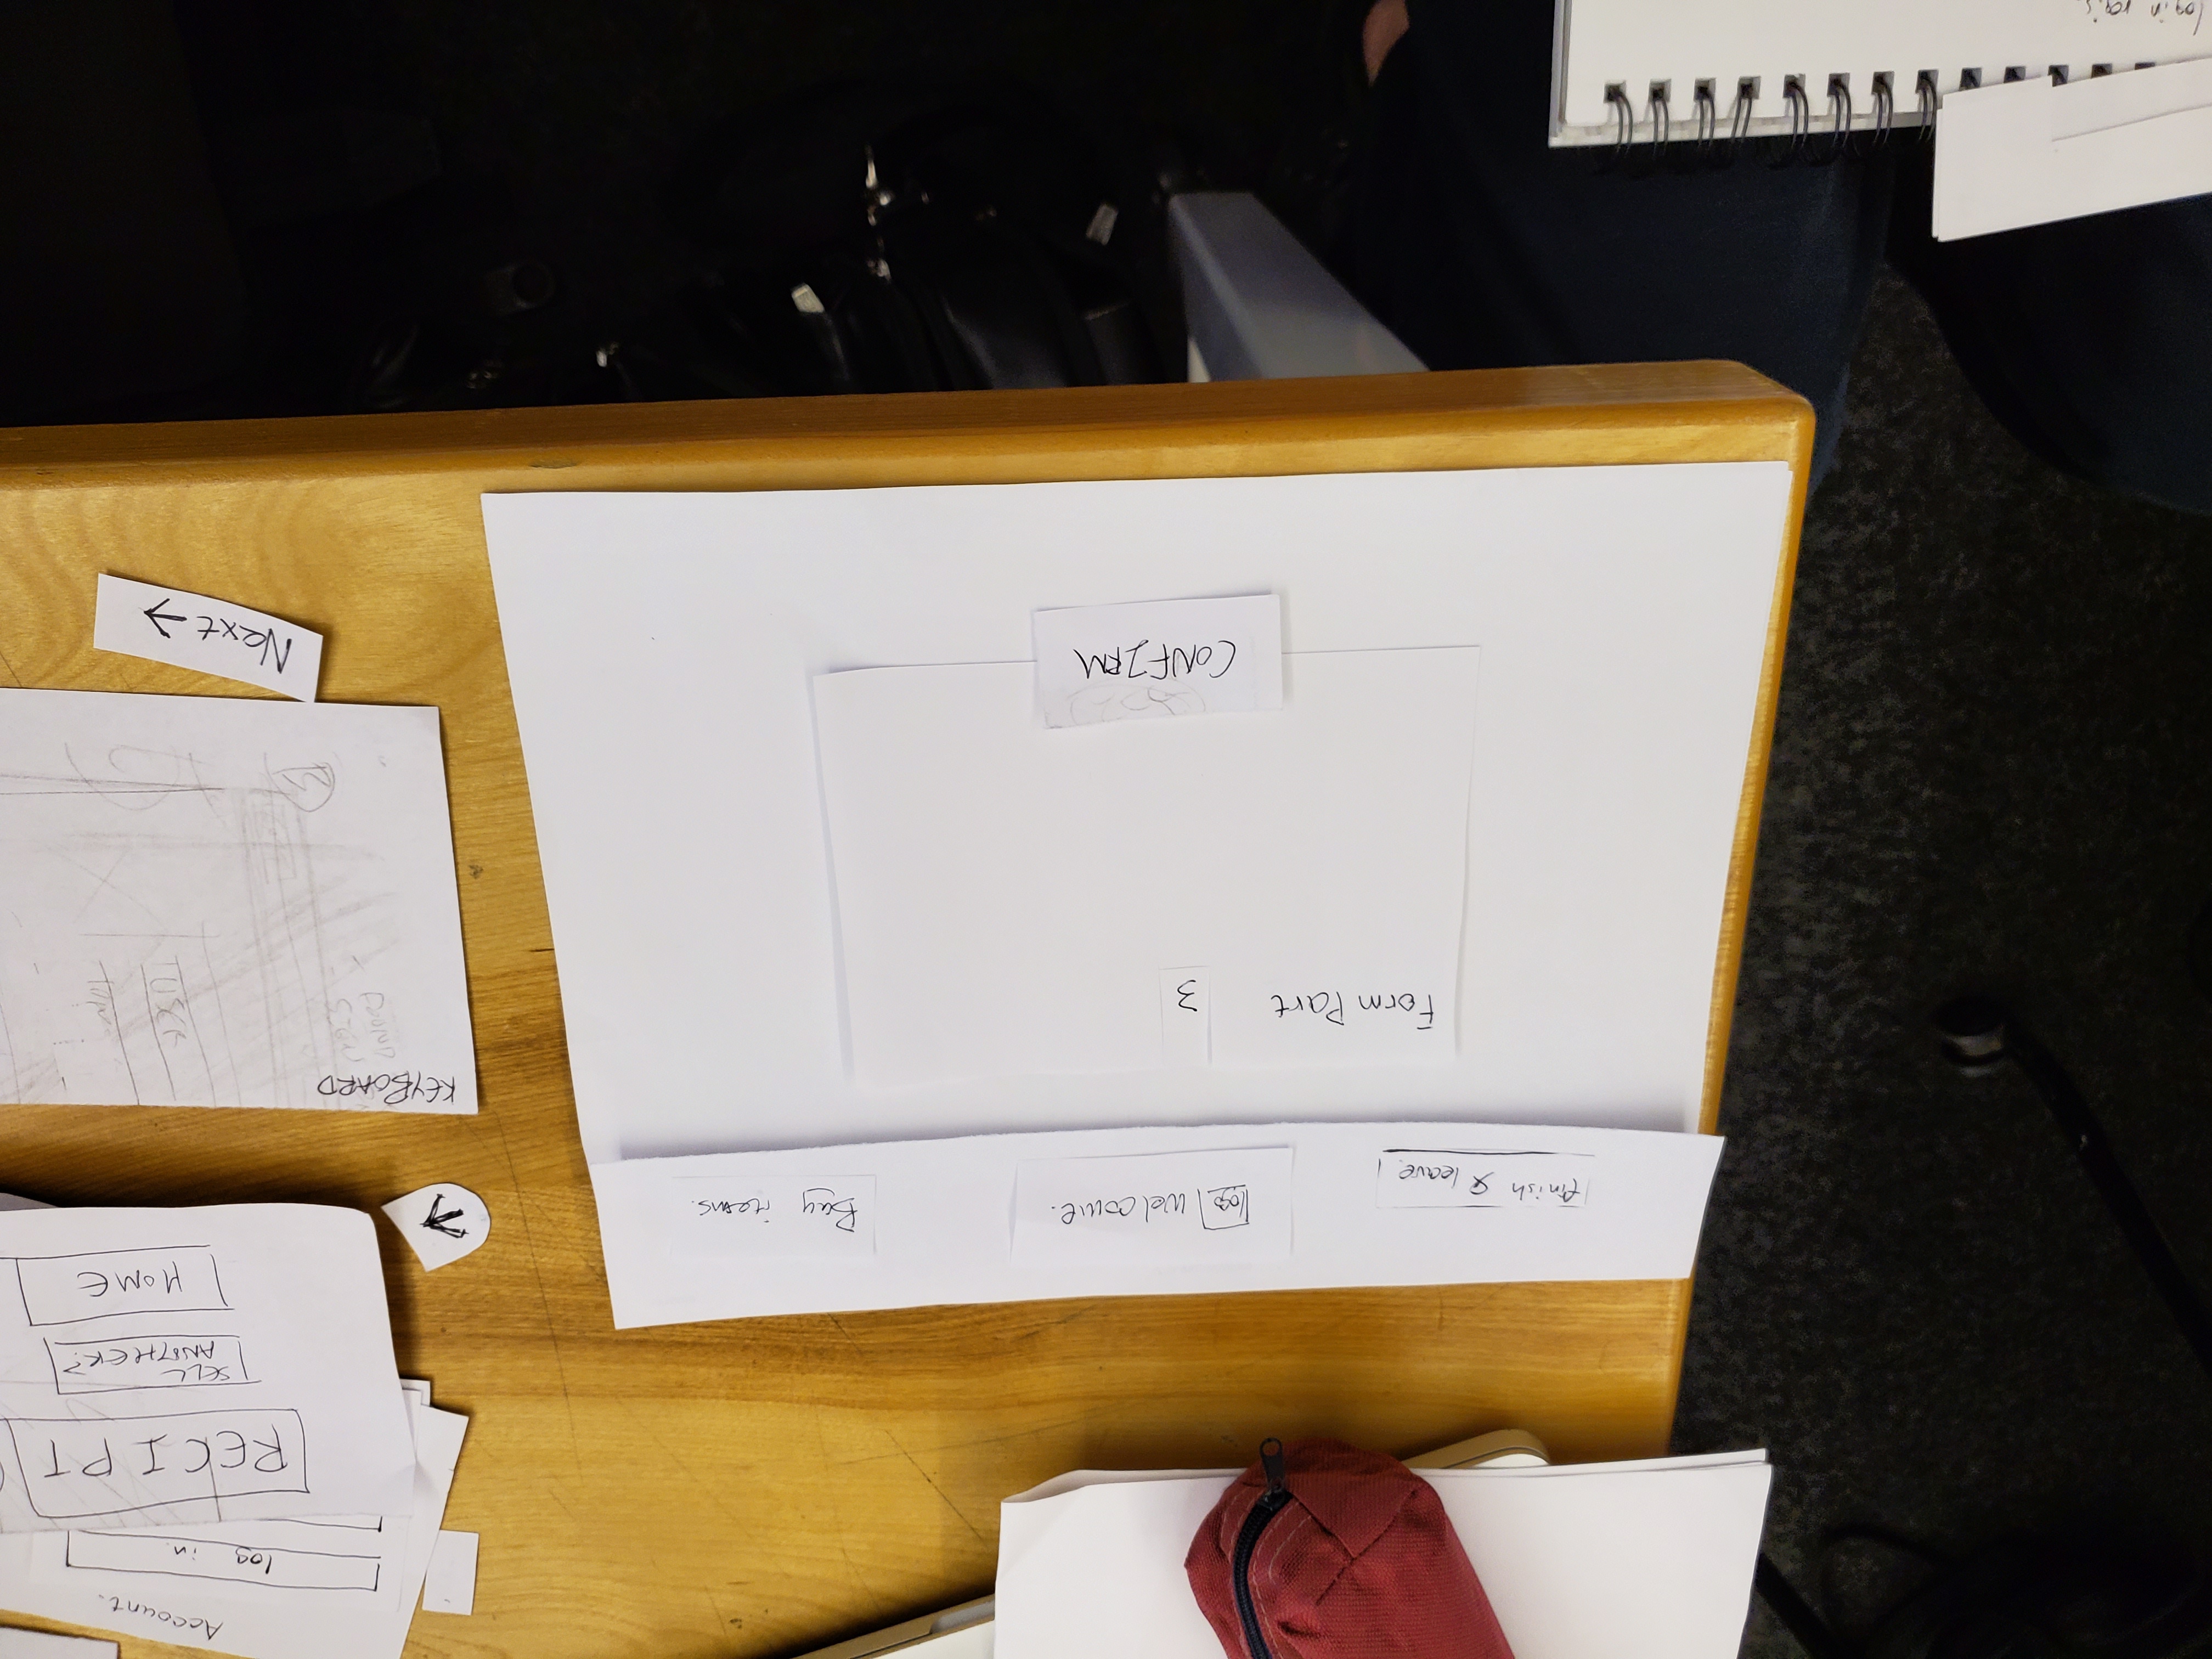 Account.
log in.
RECIPT
SELL
ANOTHER?
HOME
finish & leave
logo welcome.
Buy items.
KEYBOARD
USER
Form Part 3
CONFIRM
Next →
login regis